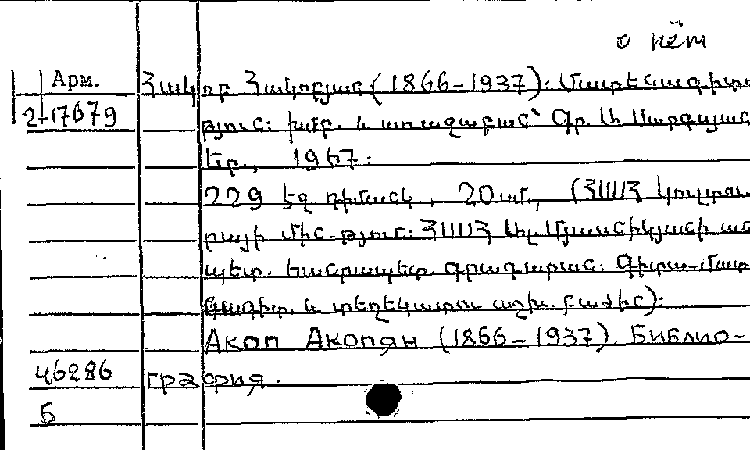 о нём
Арм.
2-17679
Հակոբ Հակոբյան (1866-1937): Մատենագիտու
թյուն: խմբ. և առաջաբան՝ Գր. Մարգարյան
Եր., 1967:
229 էջ դիմանկ., 20սմ., (ՀՍՍՀ Կուլտու
րայի մին-թյուն: ՀՍՍՀ Ալ. Մյասնիկյանի ան
պետ. հանրապետ. գրադարան. Գիտա-մատ
նագիտ. և տեղեկատու աշխ. բաժին):
Акоп Акопян (1866-1937) Библио-
графия.
46286
Б